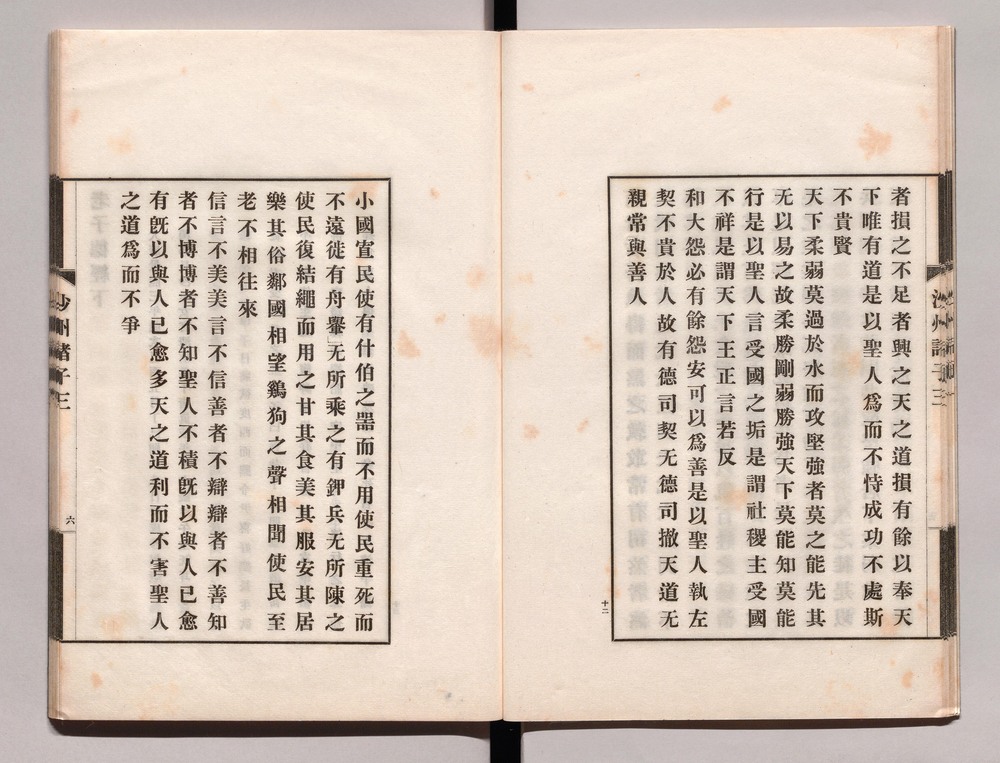 者損之不足者興之天之道損有餘以奉天
下唯有道是以聖人爲而不恃成功不處斯
不貴賢
天下柔弱莫過於水而攻堅強者莫之能先其
无以易之故柔勝剛弱勝強天下莫能知莫能
行是以聖人言受國之垢是謂社稷主受國
不祥是謂天下王正言若反
和大怨必有餘怨安可以爲善是以聖人執左
契不貴於人故有德司契无德司撤天道无
親常與善人
十二
小國宣民使有什伯之器而不用使民重死而
不遠徙有舟轝无所乘之有鉀兵无所陳之
使民復結繩而用之甘其食美其服安其居
樂其俗鄰國相望鷄狗之聲相聞使民至
老不相往來
信言不美美言不信善者不辯辯者不善知
者不博博者不知聖人不積旣以與人已愈
有旣以與人已愈多天之道利而不害聖人
之道爲而不爭
六